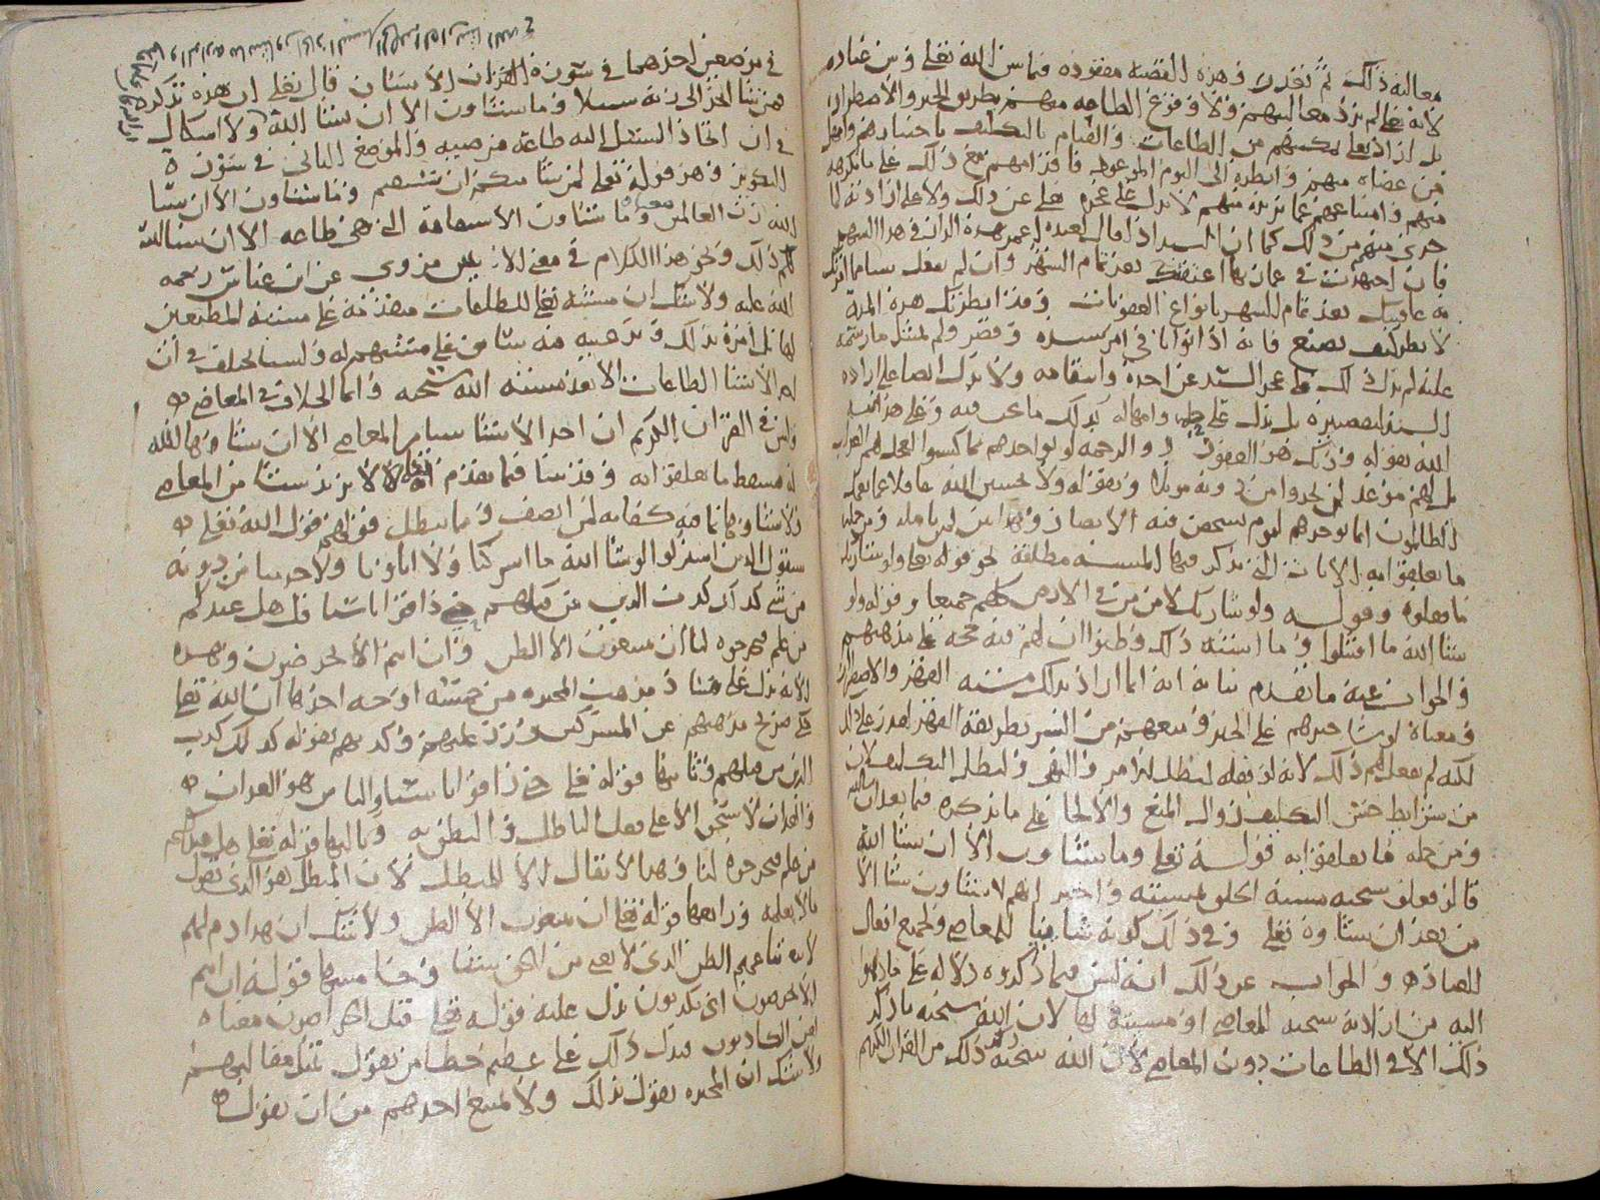 معاليه ذلك ثم تقدر وهذه القضية مفقوده فيما بين الله تعلى وبين عباده
لانه تعلى لم يرد معاليهم ولا وقوع الطاعه منهم بطريق الجبر والاضطرار
بل اراد تعلى تمكينهم من الطاعات والقيام بالتكليف باختيارهم وامهل
من عصاه منهم وانظره الى اليوم الموعود فاقدامهم مع ذلك على ما يكرهه
منهم وامتناعهم عما يريده منهم لا يدل على عجزه تعلى عن ذلك ولا على ارادته لما
جرى منهم من ذلك كما ان السيد اذا قال لعبده اعمر هذه الدار في هذا الشهر
فان اجتهدت في عمارتها اعتقتك بعد تمام الشهر وان لم تفعل شيا مما امرتك
به عاقبتك بعد تمام الشهر بانواع العقوبات وقد انظرتك هذه المدة
لانظر كيف تصنع فانه اذا توانا في امر سيده وقصر ولم يمتثل ما رسمه
عليه لم يدل ذلك على عجز السيد عن اخذه وانتقامه ولا يدل ايضا على اراده
السيد لتقصيره بل يدل على حلمه وامهاله
الله بقوله وربك هو الغفور ذو الرحمه لو يواخذهم بما كسبوا لعجل لهم العذاب
بل لهم موعد لن يجدوا من دونه موئلا وبقوله ولا تحسبن الله غافلا عما يعمل
الظالمون انما يوخرهم ليوم تشخص فيه الابصار
ما تعلقوا به الايات التي يذكر فيها المشيئه مطلقة نحو قوله تعلى ولو شا ربك
ما فعلوه وقوله ولو شا ربك لامن من في الارض كلهم جميعا وقوله ولو
شا الله ما اقتتلوا وما اشبه ذلك وظنوا ان لهم فيه حجه على مذهبهم
والجواب عنه ما تقدم بيانه انه انما اراد بذلك مشيئه القهر والاضطرار
ومعناه لو شا جبرهم على الخير ومنعهم من الشر بطريقة القهر لقدر على ذلك
لكنه لم يفعل لهم ذلك لانه لو فعله لبطل الامر والنهي ولبطل التكليف لان
من شرايط حسن التكليف زوال المنع والالجا على ما نذكره فيما بعد ان شا الله
ومن جمله ما تعلقوا به قوله تعلى وما تشاون الا ان يشا الله
قالوا فعلق سبحنه مشيئة الخلق بمشيئته واخبر انهم لا يشاون شيا الا
من بعد ان يشاوه تعلى وفي ذلك كونه شايئا للمعاصي ولجميع افعال
العباد والجواب عن ذلك انه ليس فيما ذكروه دلاله على ما ذهبوا
اليه من ارادته سبحنه للمعاصي او مشيئته لها لان الله سبحنه ما ذكر
ذلك الا في الطاعات دون المعاصي لان الله سبحنه ذكر ذلك من القران الكريم
في موضعين احدهما في سورة الانسان قال تعلى ان هذه تذكره
فمن شا اتخذ الى ربه سبيلا وما تشاون الا ان يشا الله ولا اشكال
في ان اتخاذ السبيل اليه طاعه مرضيه والموضع الثاني في سورة
التكوير وهو قوله تعلى لمن شا منكم ان يستقيم وما تشاون الا ان يشا
الله رب العالمين معناه وما تشاون الاستقامة التي هي طاعه الا ان يشا الله
لكم ذلك ونحو هذا الكلام في معنى الايتين مروي عن ابن عباس رحمه
الله عليه ولا شك ان مشيئته تعلى للطاعات متقدمة على مشيئة المطيعين
لها بل امره بذلك وترغيبه فيه سابق على مشيئتهم له ولسنا نختلف في ان
احدا لا يشا الطاعات الا بعد مشيئه الله سبحنه وانما الخلاف في المعاصي
وليس في القران الكريم ان احدا لا يشا شيا من المعاصي الا ان يشاوها الله
فسقط ما تعلقوا به وقد بينا فيما تقدم انه تعلى لا يريد شيا من المعاصي
ولا يشاوها بما فيه كفايه لمن انصف ومما يبطل قولهم قول الله تعلى
سيقول الذين اشركوا لو شا الله ما اشركنا ولا اباونا ولا حرمنا من دونه
من شي كذلك كذب الذين من قبلهم حتى ذاقوا باسنا قل هل عندكم
من علم فتخرجوه لنا ان تتبعون الا الظن وان انتم الا تخرصون وهذه
الايه تدل على فساد مذهب المجبره من خمسة اوجه احدها ان الله تعلى
حكى صريح مذهبهم عن المشركين ورد عليهم وكذبهم بقوله كذلك كذب
الذين من قبلهم وثانيها قوله تعلى حتى ذاقوا باسنا والباس هو العذاب
والعذاب لا يستحق الا على فعل الباطل والنطق به وثالثها قوله تعلى هل عندكم
من علم فتخرجوه لنا وهذا لا يقال الا للمبطل لان المبطل هو الذي يقول
ما لا يعلمه ورابعها قوله تعلى ان تتبعون الا الظن ولا شك ان هذا ذم لهم
لاتباعهم الظن الذي لا يغني من الحق شيئا وخامسها قوله ان انتم
الا تخرصون اي تكذبون يدل عليه قوله تعلى قتل الخراصون معناه
لعن الكاذبون فدل ذلك على عظم خطا من يقول بمثل مقالتهم
ولا شك ان المجبره يقول بذلك ولا يمتنع احدهم من ان يقول